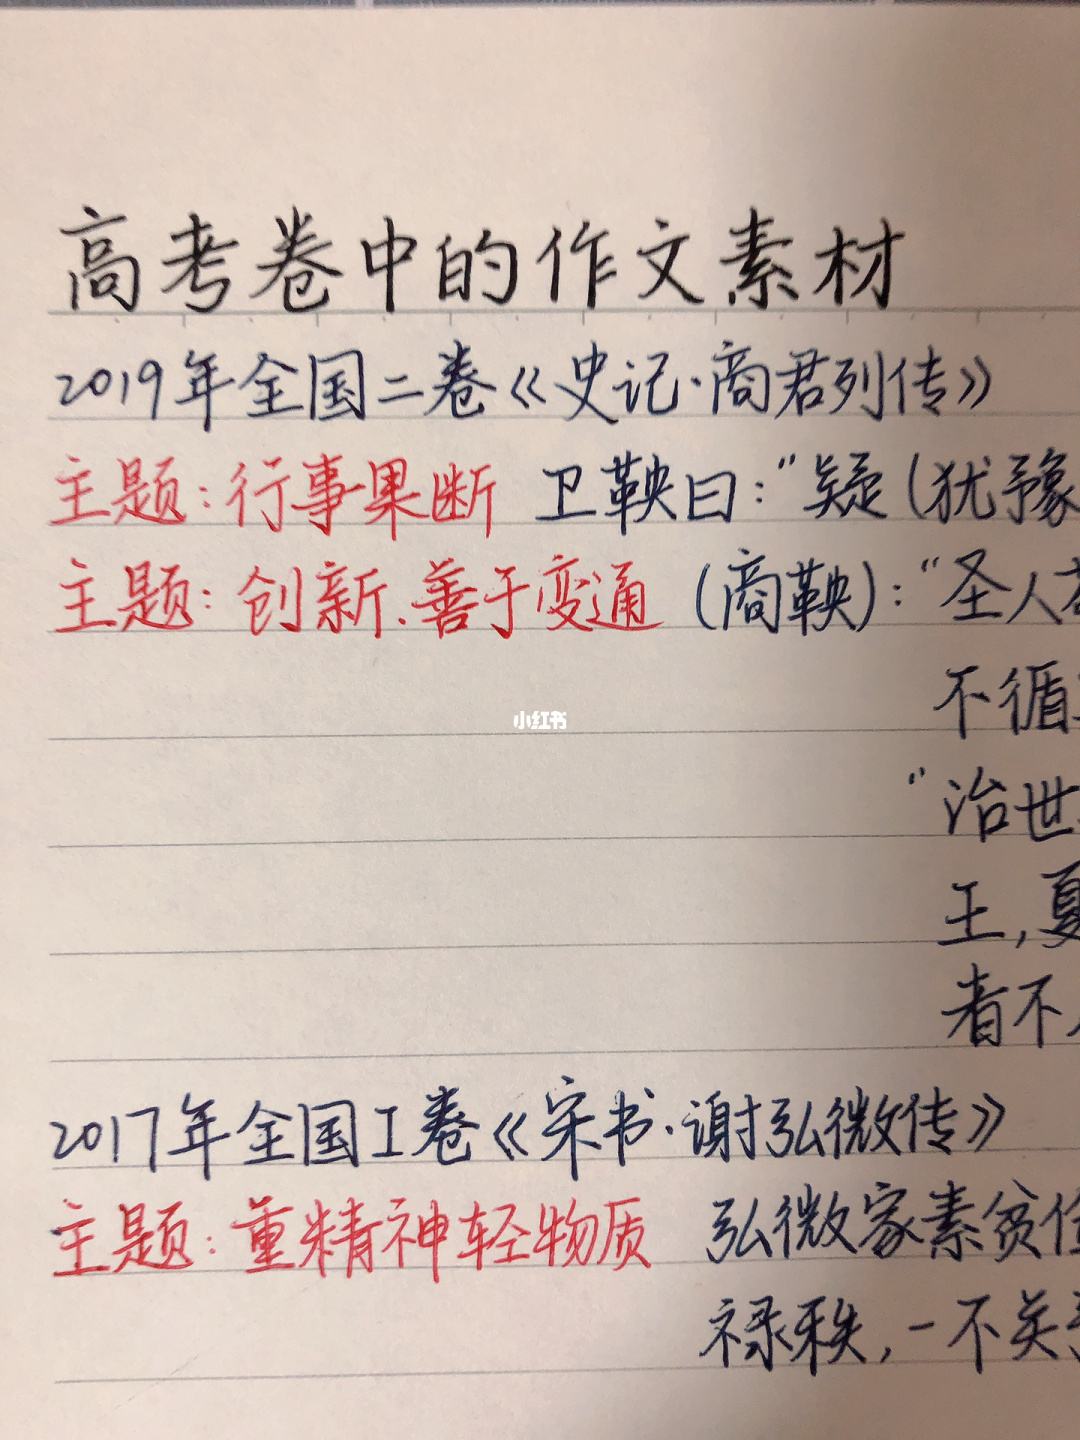 高考卷中的作文素材
2019年全国二卷《史记·商君列传》
主题：行事果断 卫鞅曰：“疑（犹豫
主题：创新、善于变通 （商鞅）：“圣人
不循
“治世
王，夏
者不
2017年全国I卷《宋书·谢弘微传》
主题：重精神轻物质 弘微家素贫
禄秩，一不关
小红书